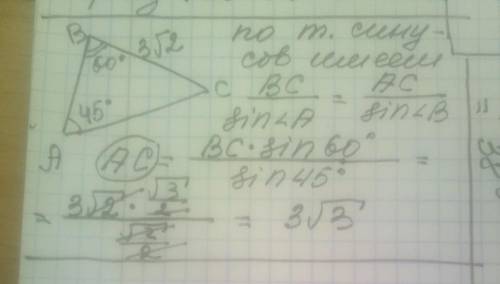 B 60° 3√2 C 45° A
по т. сину-
сов имеем
BC/sin∠A = AC/sin∠B
AC = BC·sin60°/sin45° =
= (3√2 · √3/2)/(√2/2) = 3√3